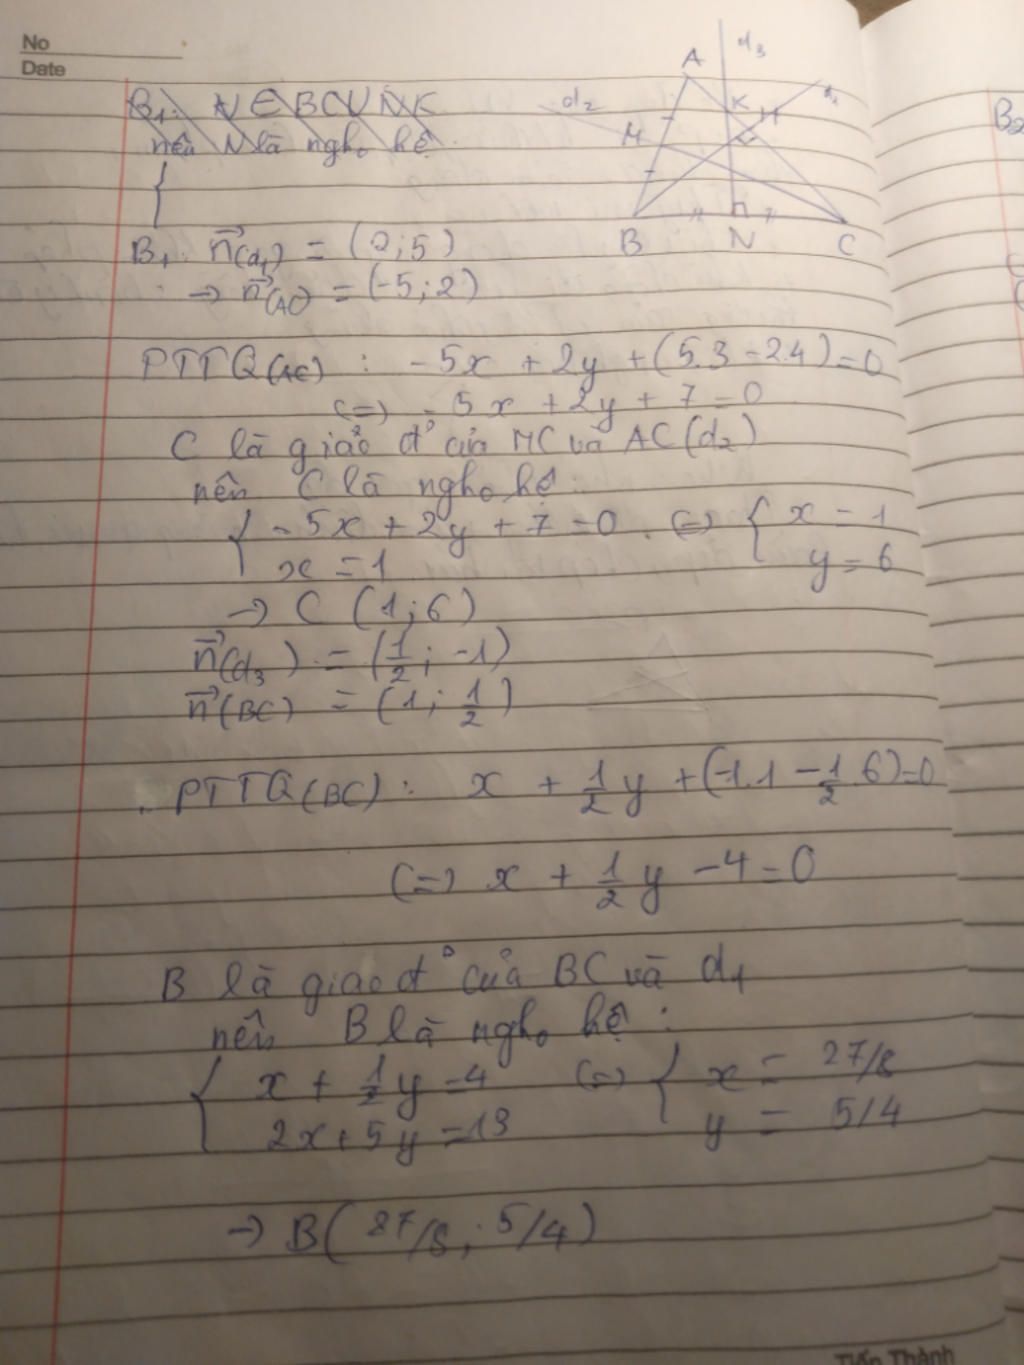 No
Date
B₁: N ∈ BC ∪ NK
nên N là ngh₀ hệ
{
A
d₃
d₂
K
H
d₁
M
B
N
C
B₂
B₁: n⃗(d₁) = (2;5)
→ n⃗(AC) = (-5;2)
PTTQ(AC) : -5x + 2y + (5.3 - 2.4) = 0
(=) -5x + 2y + 7 = 0
C là giao đ° của MC và AC (d₂)
nên C là ngh₀ hệ:
{ -5x + 2y + 7 = 0 (=) { x = 1
x = 1 y = 6
→ C (1;6)
n⃗(d₃) = (1/2; -1)
n⃗(BC) = (1; 1/2)
PTTQ(BC): x + 1/2 y + (-1.1 - 1/2.6) = 0
(=) x + 1/2 y - 4 = 0
B là giao đ° của BC và d₁
nên B là ngh₀ hệ :
{ x + 1/2 y = 4 (=) { x = 27/8
2x + 5y = 13 y = 5/4
→ B( 27/8 ; 5/4)
Tiến Thành